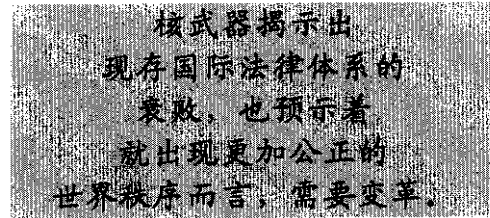 核武器揭示出
现存国际法律体系的
衰败，也预示着
就出现更加公正的
世界秩序而言，需要变革。